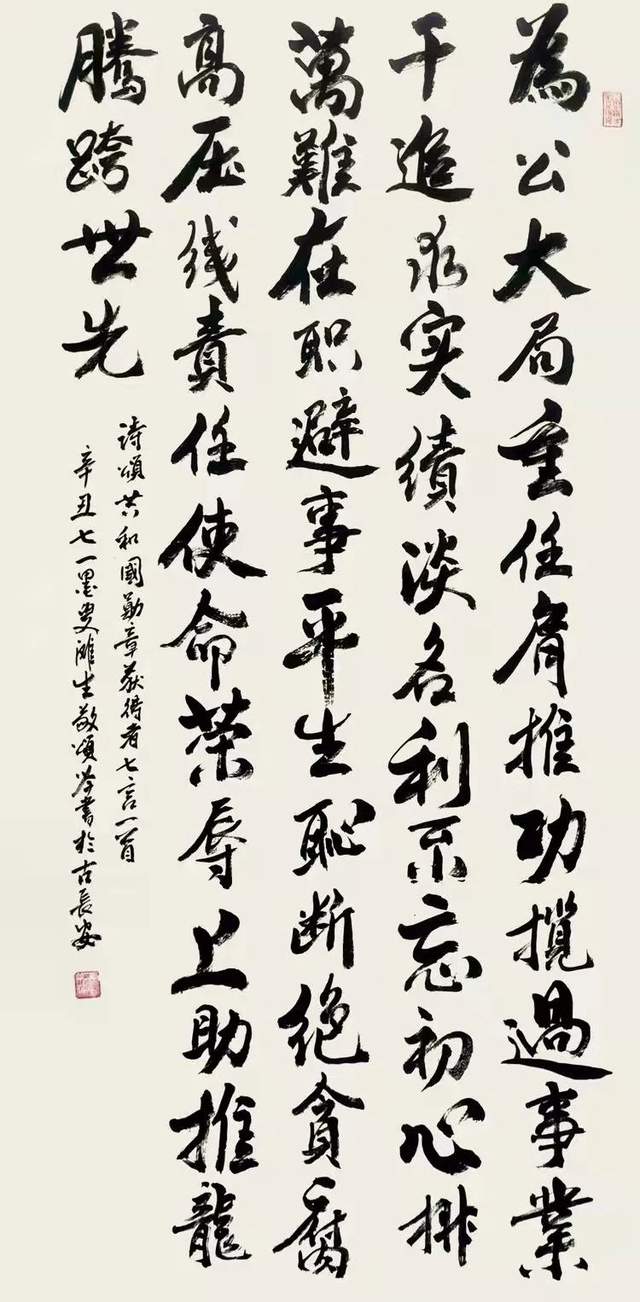 為公大局重任肩推功攬過事業
干追求实績淡名利不忘初心排
萬難在职避事平生恥断绝貪腐
高压线責任使命荣辱上助推龍
騰跨世先
诗頌共和國勋章获得者七言一首
辛丑七一墨叟雒生敬頌并書於古長安